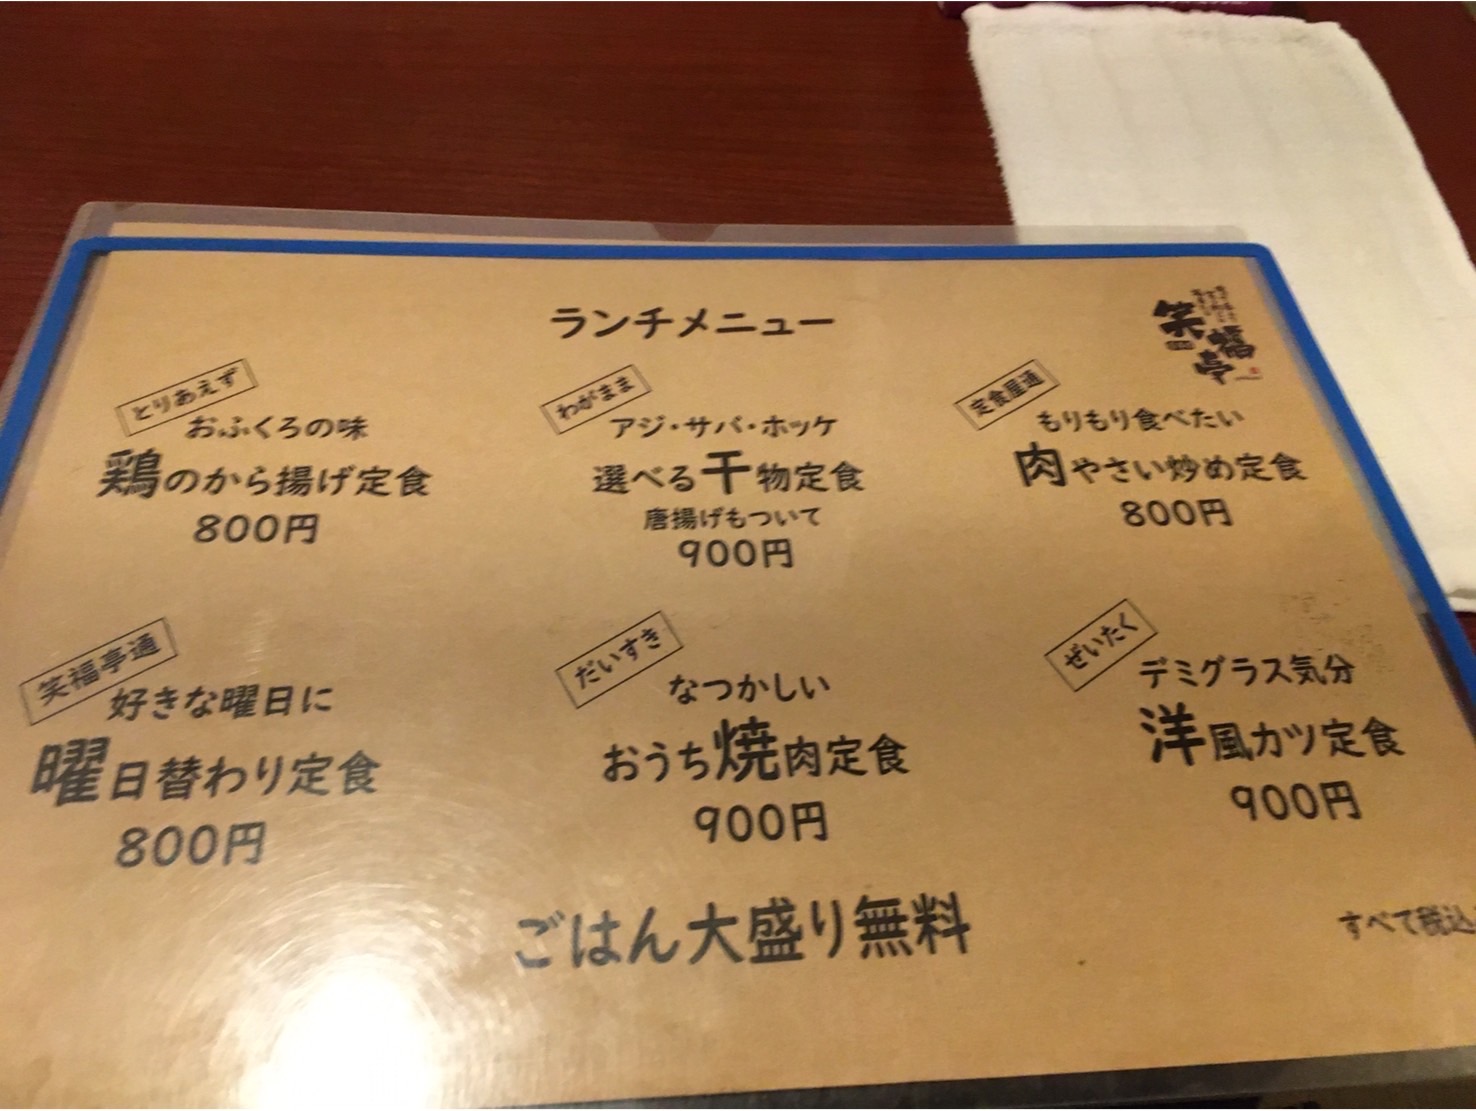 ランチメニュー
笑福亭
とりあえず
おふくろの味
鶏のから揚げ定食
800円
わがまま
アジ・サバ・ホッケ
選べる干物定食
唐揚げもついて
900円
定食屋通
もりもり食べたい
肉やさい炒め定食
800円
笑福亭通
好きな曜日に
曜日替わり定食
800円
だいすき
なつかしい
おうち焼肉定食
900円
ぜいたく
デミグラス気分
洋風カツ定食
900円
ごはん大盛り無料
すべて税込